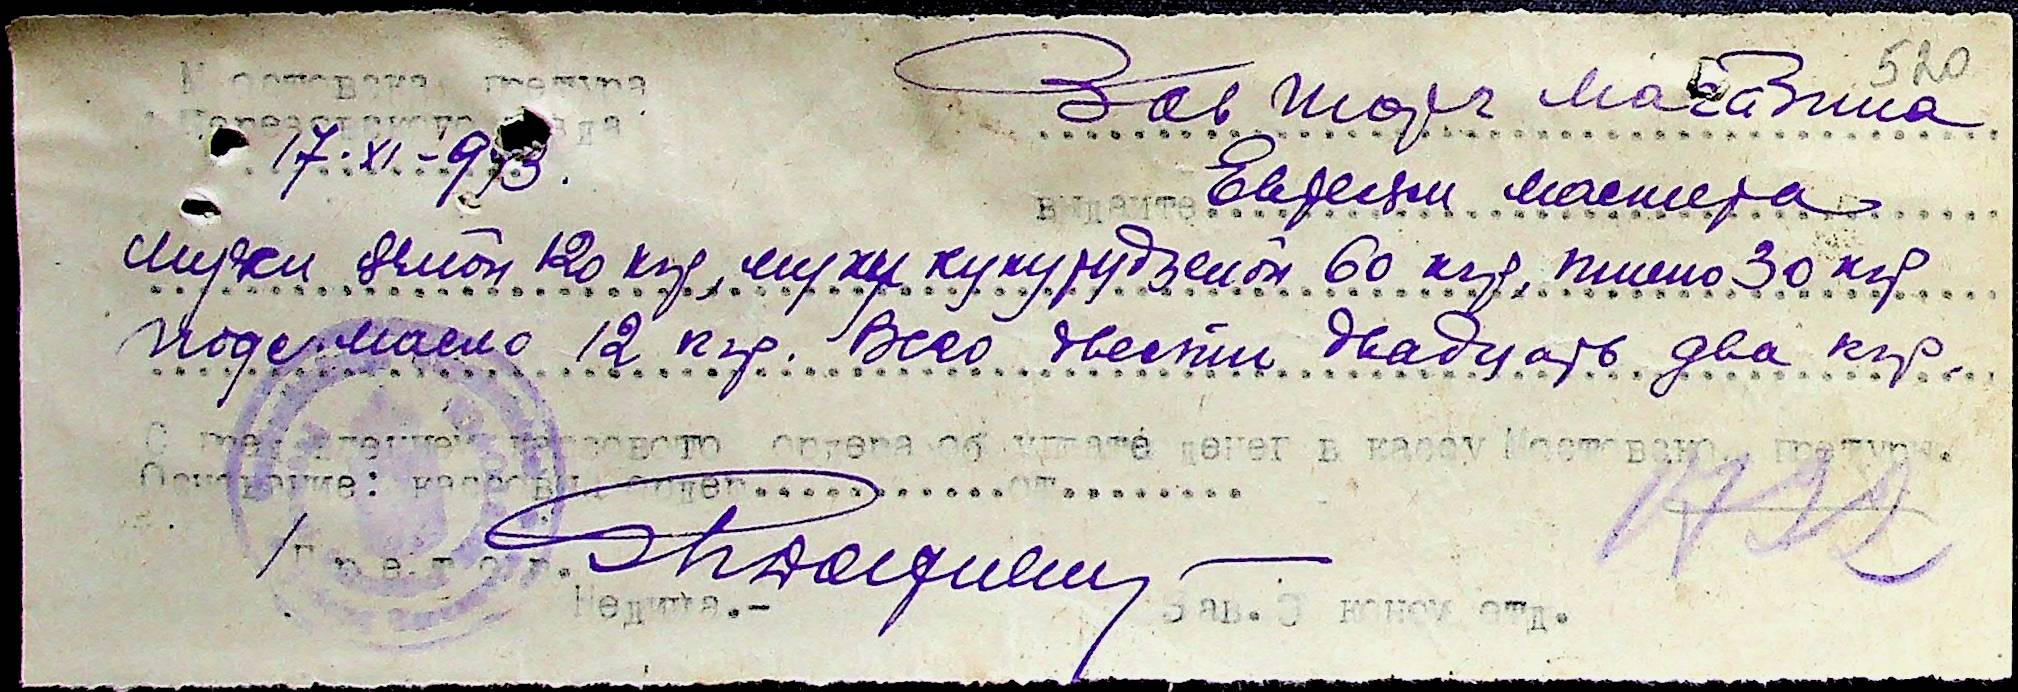 520
Мостовская претура
Березовского уезда
Зав торг магазина
17.XI.-943.
видайте Евреям мастера
муки ячной 120 кгр, муку кукурудзеной 60 кгр, пшено 30 кгр
подс. масло 12 кгр. Всего двести двадцать два кгр.
С пред'явлением кассового ордера об уплате денег в кассу Мостовской претуры.
Основание: кассовый ордер............от.........
Претор.
Недица.- Зав. Эконом отд.